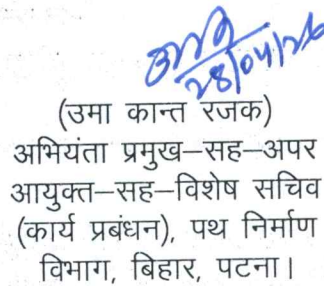 28/04/26
(उमा कान्त रजक)
अभियंता प्रमुख–सह–अपर
आयुक्त–सह–विशेष सचिव
(कार्य प्रबंधन), पथ निर्माण
विभाग, बिहार, पटना।